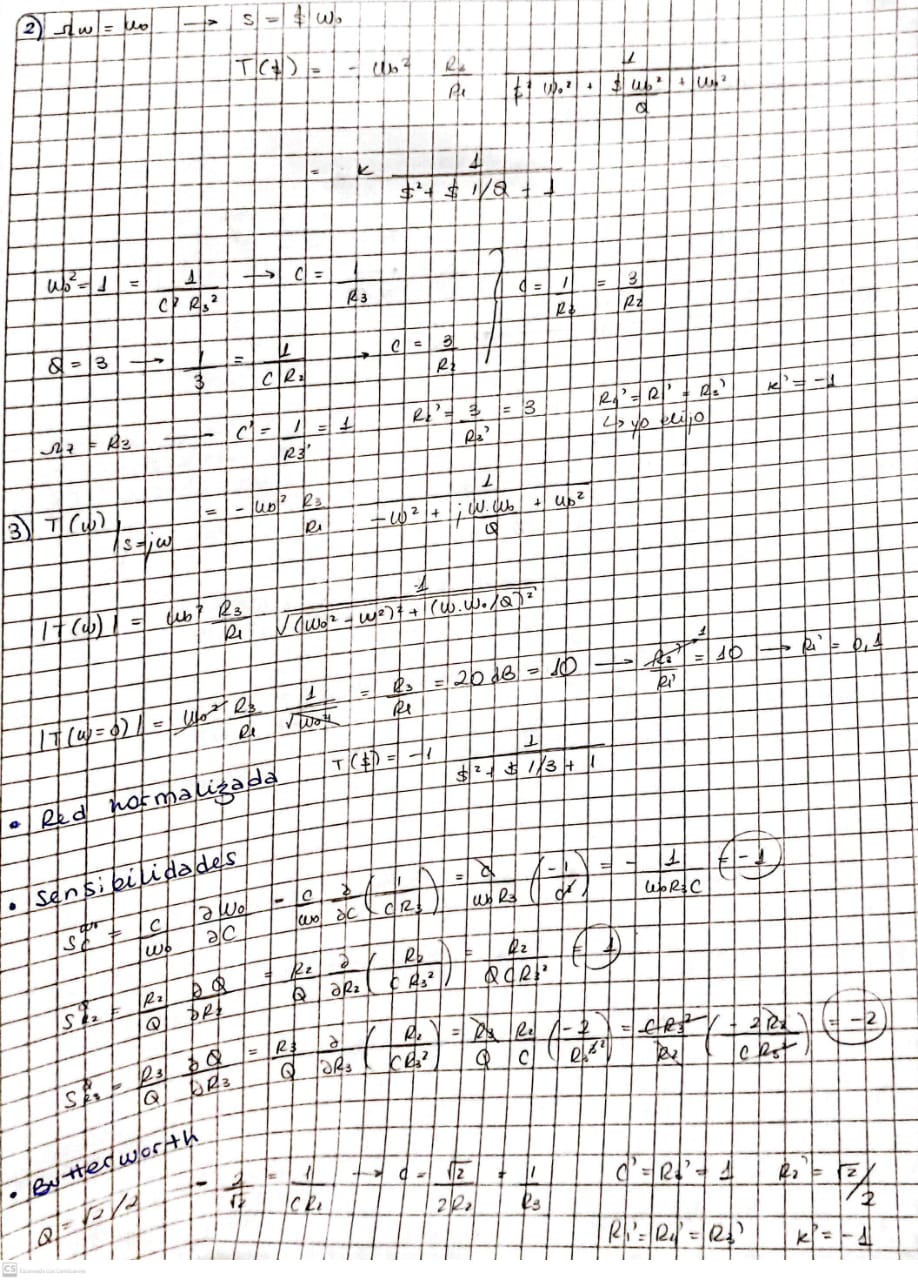 2) Ωw = ω₀ → s = $ ω₀
T($) = - ω₀² R₃/R₁ 1/($² ω₀² + $ ω₀²/Q + ω₀²)
= k 1/($² + $ 1/Q + 1)
ω₀² = 1 = 1/(C² R₃²) → C = 1/R₃
C = 1/R₃ = 3/R₂
Q = 3 → 1/3 = 1/(C R₂) → C = 3/R₂
Ωz = R₃ — C' = 1/R₃' = 1 R₂' = 3/R₃' = 3 R₄' = R₁' = R₃' k' = -1
↳ yo elijo
3) T(ω)|s=jω = - ω₀² R₃/R₁ 1/(-ω² + j ω.ω₀/Q + ω₀²)
|T(ω)| = ω₀² R₃/R₁ 1/√((ω₀² - ω²)² + (ω.ω₀/Q)²)
|T(ω=0)| = ω₀² R₃/R₁ 1/√ω₀⁴ = R₃/R₁ = 20 dB = 10 → R₃'/R₁' = 10 → R₁' = 0,1
• Red normalizada T($) = -1 1/($² + $ 1/3 + 1)
• Sensibilidades
S_C^ω₀ = C/ω₀ ∂ω₀/∂C = C/ω₀ ∂/∂C (1/(C R₃)) = C/(ω₀ R₃) (-1/C²) = - 1/(ω₀ R₃ C) = -1
S_R₂^Q = R₂/Q ∂Q/∂R₂ = R₂/Q ∂/∂R₂ (R₂/(C R₃²)) = R₂/(Q C R₃²) = 1
S_R₃^Q = R₃/Q ∂Q/∂R₃ = R₃/Q ∂/∂R₃ (R₂/(C R₃²)) = R₃/Q R₂/C (-2/R₃³) = C R₃²/R₂ (-2 R₂/(C R₃²)) = -2
• Butterworth
Q = √2/2 → 2/√2 = 1/(C R₂) → C = √2/(2R₂) = 1/R₃ C' = R₃' = 1 R₂' = √2/2
R₁' = R₄' = R₃' k' = -1
CS Escaneado con CamScanner